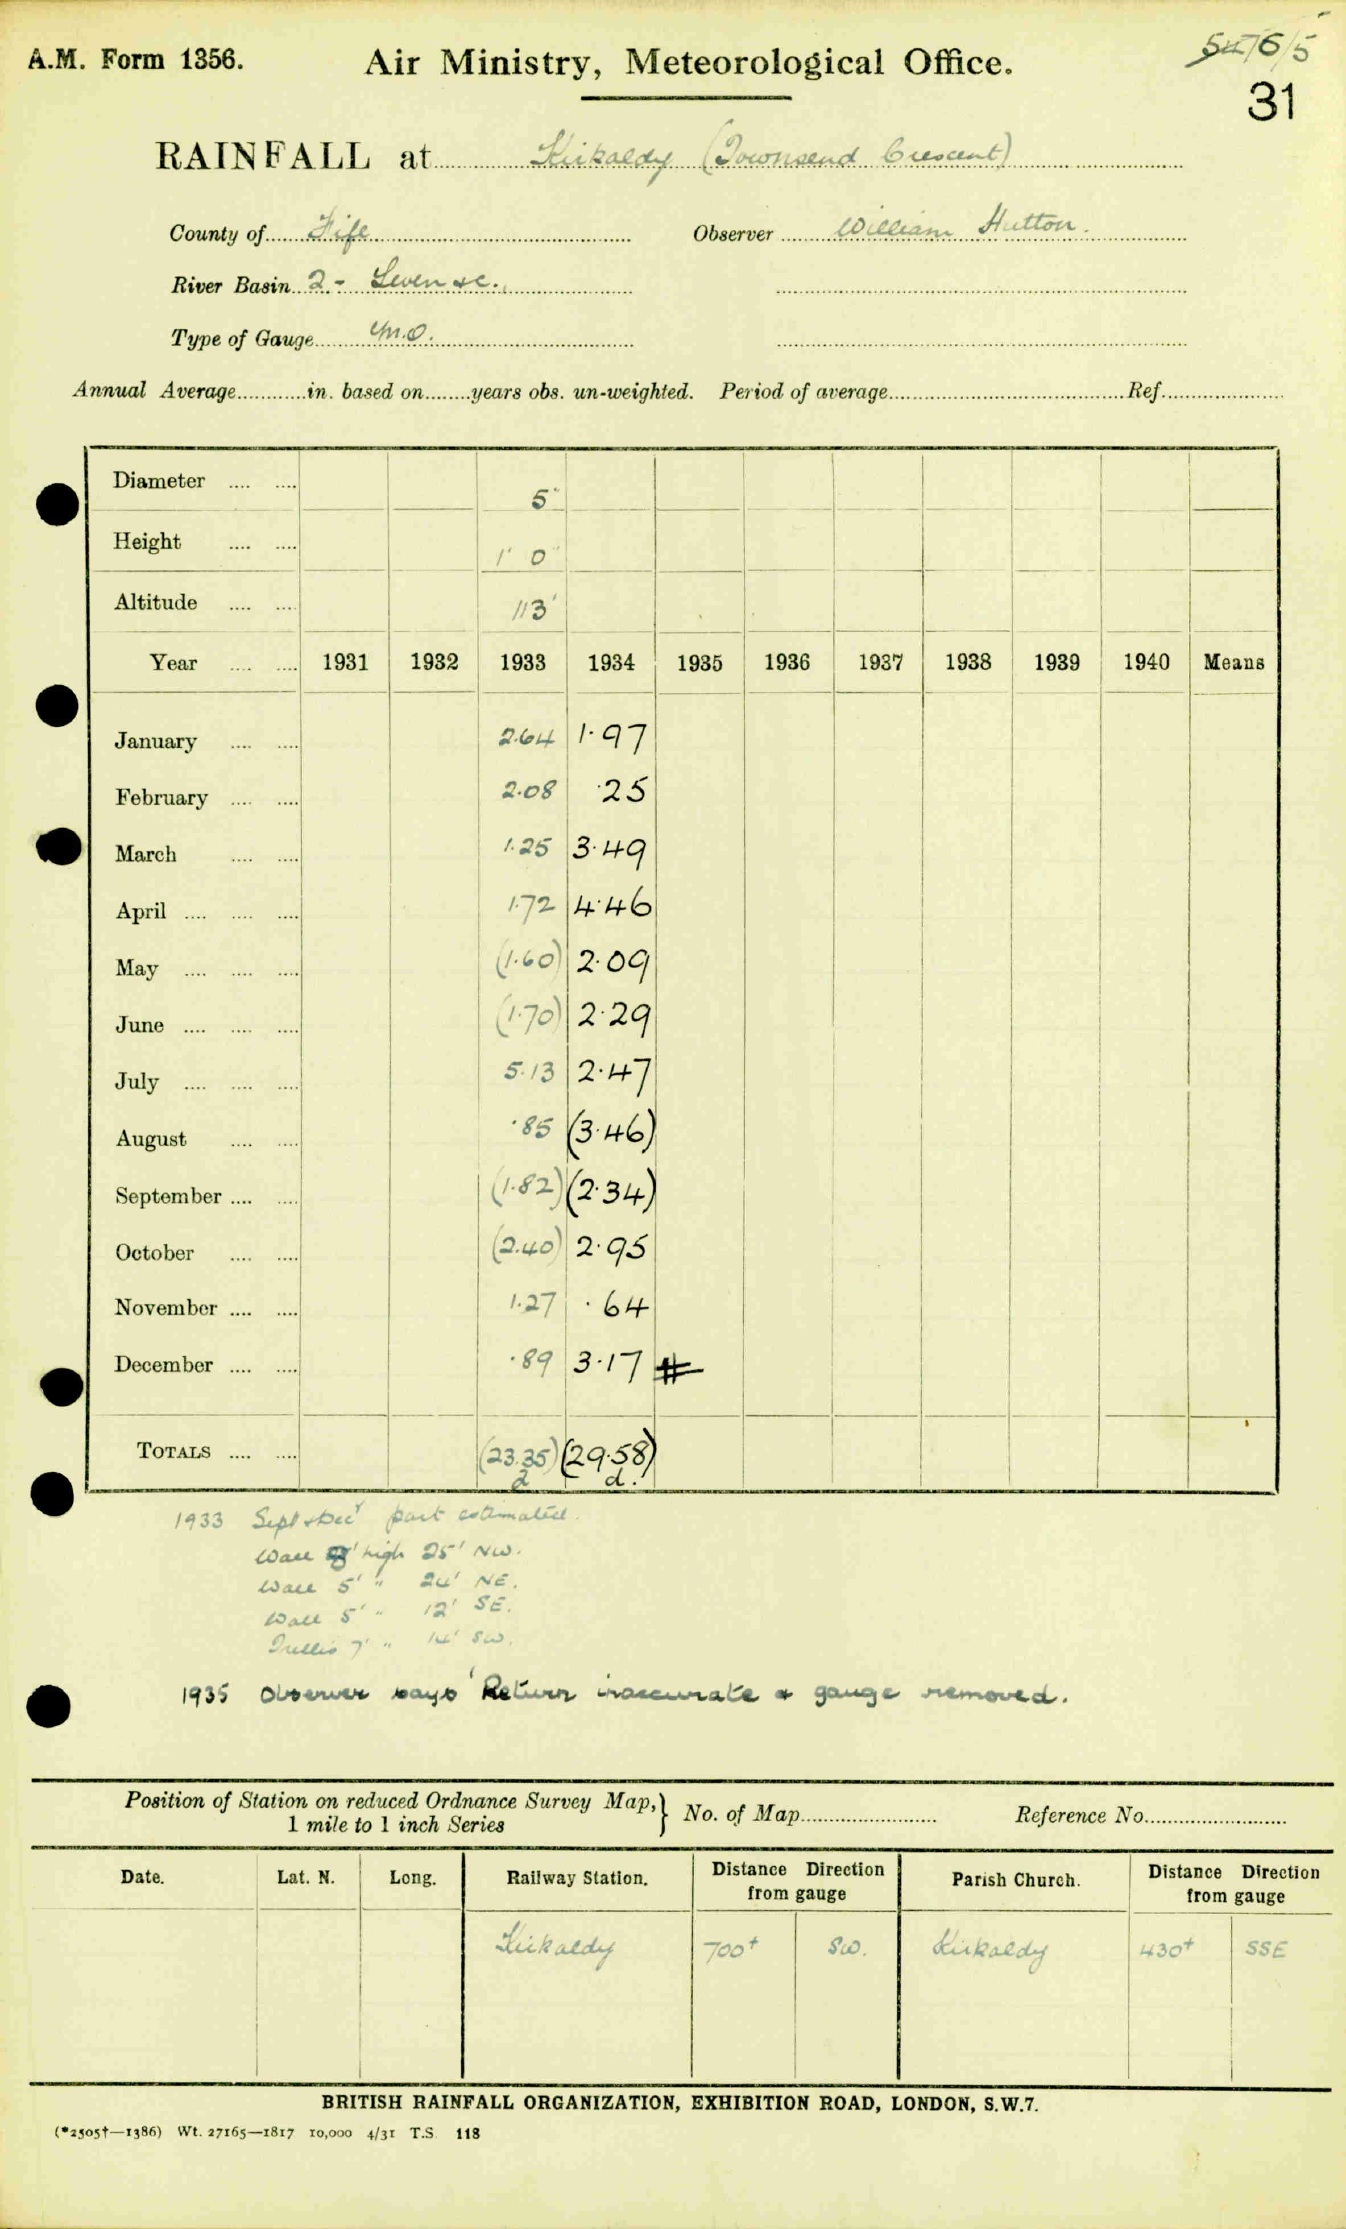 A.M. Form 1356. Air Ministry, Meteorological Office. 5476/5
31
RAINFALL at Kirkaldy (Townsend Crescent)
County of Fife Observer William Hutton.
River Basin 2 - Leven &c.
Type of Gauge M.O.
Annual Average............in. based on........years obs. un-weighted. Period of average........................................Ref.....................
Diameter .... .... 5"
Height .... .... 1' 0"
Altitude .... .... 113'
Year .... .... 1931 1932 1933 1934 1935 1936 1937 1938 1939 1940 Means
January .... .... 2.64 1.97
February .... .... 2.08 .25
March .... .... 1.25 3.49
April .... .... .... 1.72 4.46
May .... .... .... (1.60) 2.09
June .... .... .... (1.70) 2.29
July .... .... .... 5.13 2.47
August .... .... .85 (3.46)
September .... .... (1.82) (2.34)
October .... .... (2.40) 2.95
November .... .... 1.27 .64
December .... .... .89 3.17 #
TOTALS .... .... (23.35) (29.58)
d d.
1933 Sept & Dec^r part estimated.
Wall high 25' NW.
Wall 5' " 24' NE.
Wall 5' " 12' SE.
Trellis 7' " 14' SW.
1935 Observer says 'Return inaccurate & gauge removed.
Position of Station on reduced Ordnance Survey Map,} No. of Map........................ Reference No.........................
1 mile to 1 inch Series
Date. Lat. N. Long. Railway Station. Distance Direction from gauge Parish Church. Distance Direction from gauge
Kirkaldy 700+ SW. Kirkaldy 430+ SSE
BRITISH RAINFALL ORGANIZATION, EXHIBITION ROAD, LONDON, S.W.7.
(*2505†—1386) Wt. 27165—1817 10,000 4/31 T.S. 118